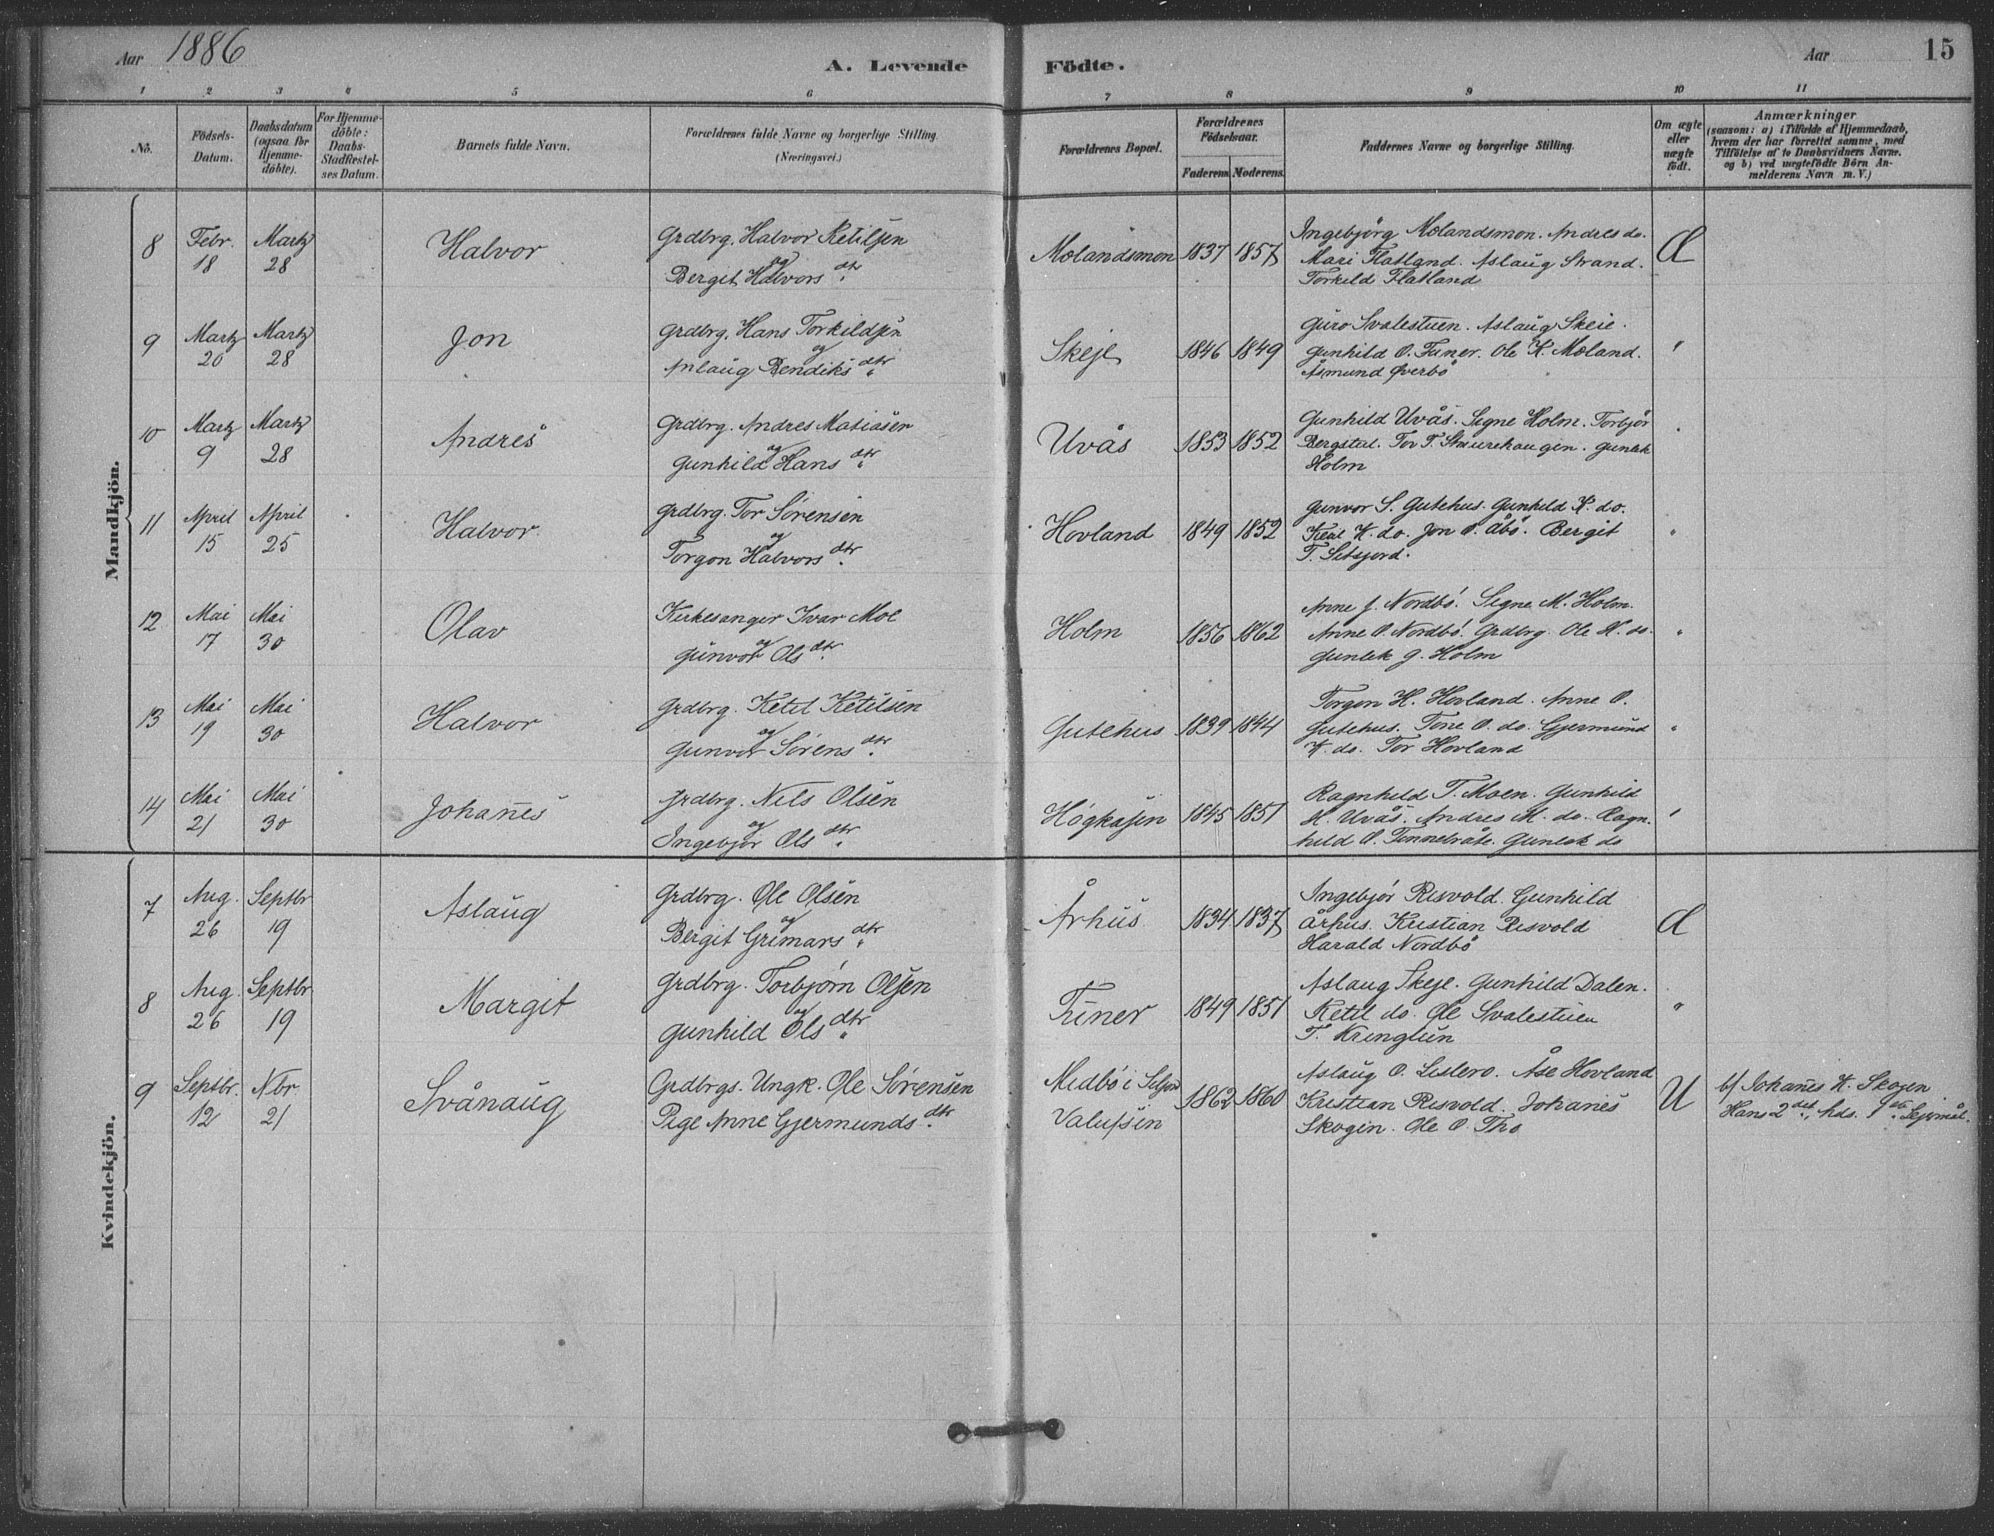 Aar 1886
A. Levende Födte.
Aar 15
1 2 3 4 5 6 7 8 9 10 11
No.
Födsels-Datum.
Daabsdatum (ogsaa for Hjemme-döbte).
For Hjemme-döbte: Daabs-Stadfæstel-ses Datum.
Barnets fulde Navn.
Forældrenes fulde Navne og borgerlige Stilling.
(Næringsvei.)
Forældrenes Bopæl.
Forældrenes Födselsaar.
Faderens Moderens.
Faddernes Navne og borgerlige Stilling.
Om ægte eller uægte födt.
Anmærkninger
(saasom: a) i Tilfælde af Hjemmedaab,
hvem der har forrettet samme, med
Tilföielse af to Daabsvidners Navne.
og b) ved uægtefödte Börn An-
melderens Navn m. V.)
Mandkjön.
8 Febr. 18 Martz 28 Halvor
Grdbrg. Halvor Ketilsen
og
Berget Halvors dtr.
Molandsmon 1837 1857
Ingebjörg Molandsmon. Andres do.
Mari Flatland. Aslaug Strand.
Torkild Flatland
Æ
9 Martz 20 Martz 28 Jon
Grdbrg. Hans Torkildsen
og
Anlaug Bendiks dtr.
Skeje 1846 1849
Guro Svalestuen. Aslaug Skeie.
Gunhild O. Tuner. Ole K. Moland.
Åsmund Överbö
"
10 Martz 9 Martz 28 Andres
Grdbrg. Andres Matiasen
og
Gunhild Hans dtr.
Uvås 1853 1852
Gunhild Uvås. Signe Holm. Torbjør
Bergstal. Tor T. Staurehaugen. Gunlek
Holm
"
11 April 15 April 25 Halvor
Grdbrg. Tor Sørensen
og
Torgon Halvors dtr.
Hovland 1849 1852
Gunvor S. Gutehus. Gunhild K. do.
K. do. Jon O. Åbø. Bergit
T.
"
12 Mai 17 Mai 30 Olav
Kirkesanger Ivar Moe
og
Gunvor Ols dtr.
Holm 1856 1862
Anne J. Nordbö. Signe M. Holm.
Anne O. Nordbö. Grdbrg. Ole H. do.
Gunlek G. Holm
"
13 Mai 19 Mai 30 Halvor
Grdbrg. Ketil Ketilsen
og
Gunvor Sørens dtr.
Gutehus 1839 1844
Torgon H. Hovland. Anne O.
Gutehus. Tone O. do. Gjermund
K. do. Tor Hovland
"
14 Mai 21 Mai 30 Johanes
Grdbrg. Nils Olsen
og
Ingebjør Ols dtr.
Högkasin 1845 1851
Ragnhild T. Moen. Gunhild
H. Uvås. Andres M. do. Ragn-
hild O. Gunlek do
"
Kvindekjön.
7 Aug. 26 Septbr 19 Aslaug
Grdbrg. Ole Olsen
og
Bergit Grimars dtr.
Århus 1834 1837
Ingebjör Risvold. Gunhild
Århus. Kristian Risvold
Harald Nordbö
Æ
8 Aug. 26 Septbr 19 Margit
Grdbrg. Torbjørn Olsen
og
Gunhild Ols dtr.
Tuner 1849 1851
Aslaug Skeje. Gunhild Dalen.
Ketil do. Ole Svalestuen
T. Kringlun
"
9 Septbr. 12 Nbr. 21 Svånaug
Grdbrgs. Ungk. Ole Sørensen
Pige Anne Gjermunds dtr.
Midbö i Seljord
Valefsin
1862 1860
Aslaug O. Lislero. Åse Hovland
Kristian Risvold. Johanes
Skogin. Ole O. Tho
U
b/ Johanes K. Skogen
Hans 2det, hds. 1ste Lejermål.